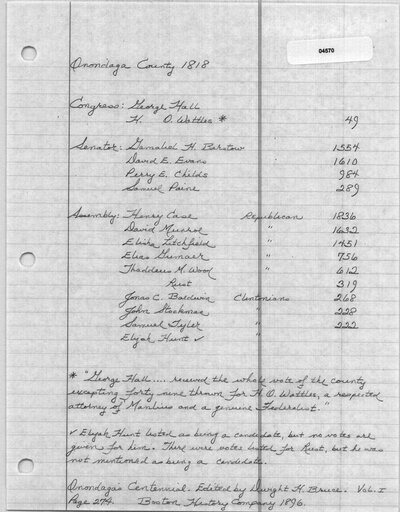 04570
Onondaga County 1818
Congress: George Hall
H. O. Wattles * 49
Senator: Gamaliel H. Barstow 1554
David E. Evans 1610
Perry E. Childs 984
Samuel Paine 289
Assembly: Henry Case Republican 1836
David Munrol " 1632
Elvira Litchfield " 1451
Elias Gumaer " 756
Thaddeus M. Wood " 612
Rust 319
Jonas C. Baldwin Clintonians 268
John Stockman " 228
Samuel Tyler " 222
Elijah Hunt ✓ "
* "George Hall.... received the whole vote of the county
excepting forty nine thrown for H. O. Wattles, a respected
attorney of Manlius and a genuine Federalist."
✓ Elijah Hunt listed as being a candidate, but no votes are
given for him. There were votes listed for Rust, but he was
not mentioned as being a candidate.
Onondaga's Centennial. Edited by Dwight H. Bruce. Vol. I
Page 274. Boston History Company 1896.